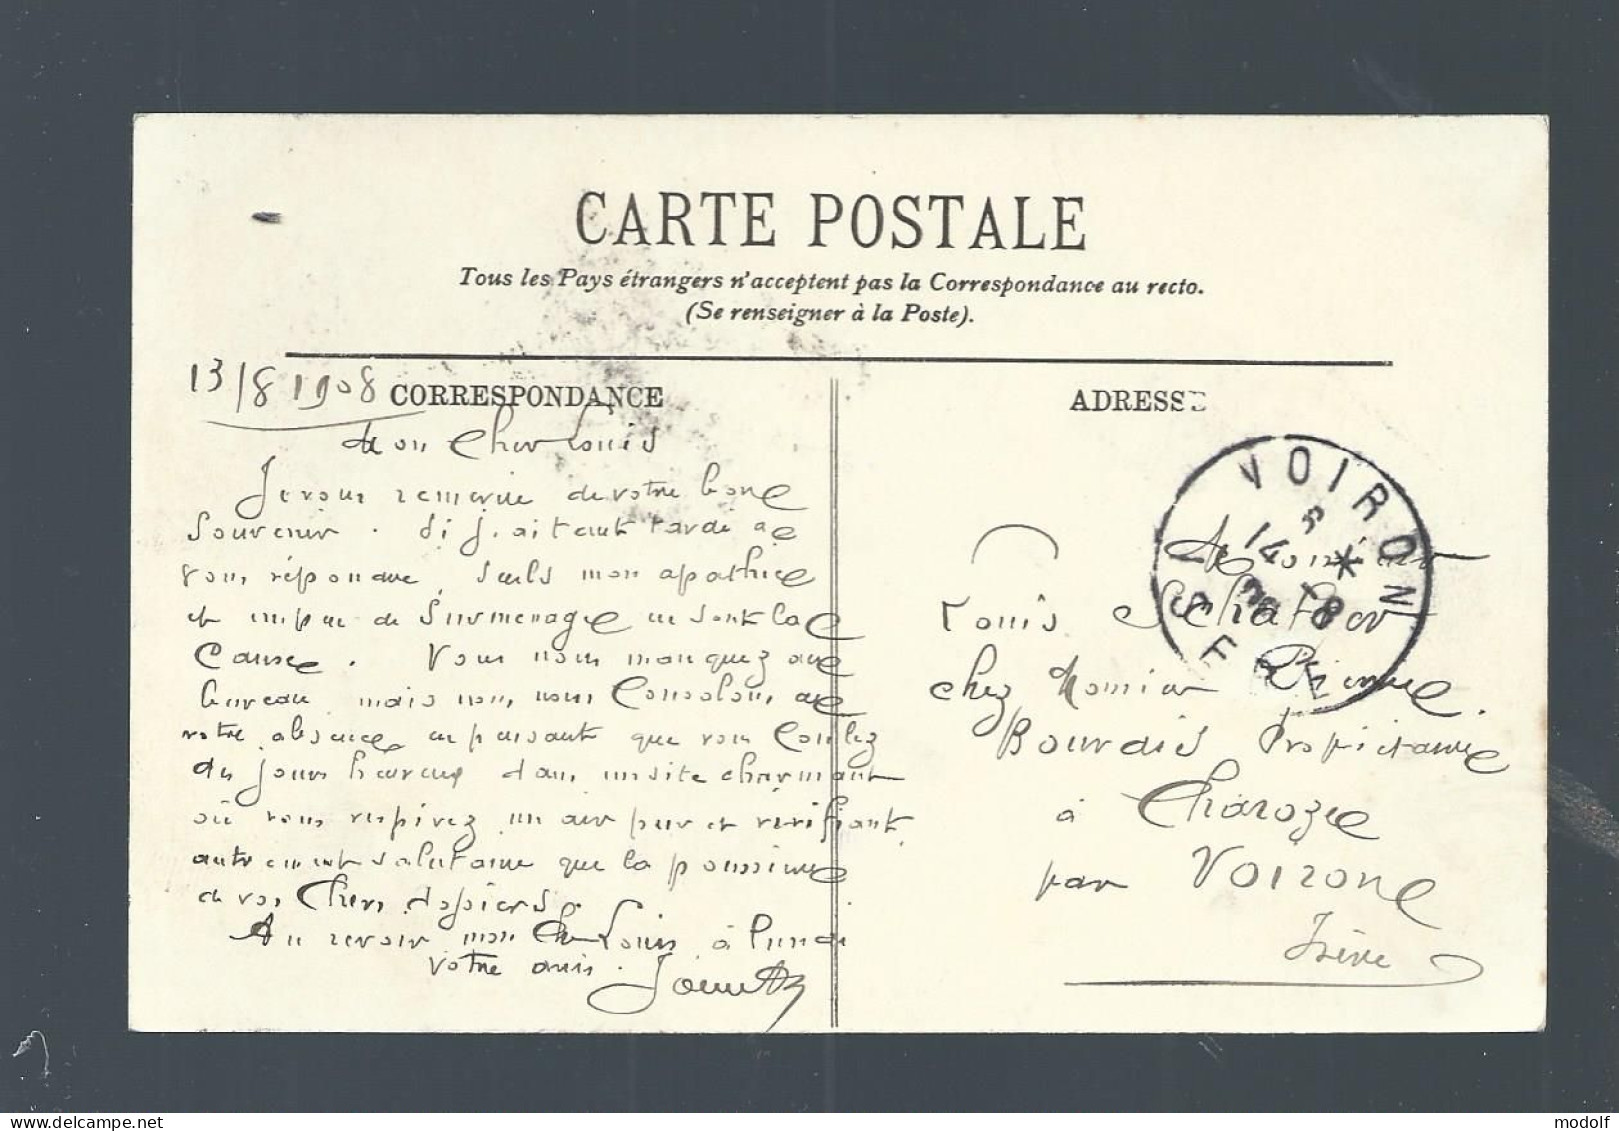 CARTE POSTALE
Tous les Pays étrangers n'acceptent pas la Correspondance au recto.
(Se renseigner à la Poste).
13/8 1908
CORRESPONDANCE
Mon Cher Louis
Je vous remercie de votre bone
Souvenir. Si j'ai tant tardé de
vous répondre, seuls mon apathie
et un peu de Surmenage en sont la
Cause. Vous nous manquez au
bureau mais nous nous Consolons de
votre absence en pensant que vous Coulez
des jours heureux dans un site charmant
où vous respirez un air pur et vivifiant,
autrement salutaire que la poussière
de vos Chers dossiers.
Au revoir mon Cher Louis à lundi
Votre ami.
ADRESSE
VOIRON
14
8
08
ISERE
Monsieur
Louis
chez Monsieur
Bourdis Propriétaire
à Charoze
par VOIRON
Isère
delcampe.net
modolf